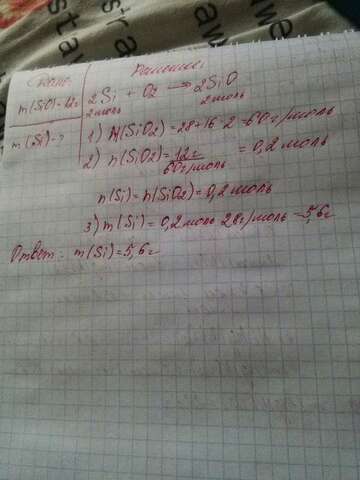 Дано:
m(SiO)=12г
m(Si)-?
Решение:
2Si + O2 → 2SiO
2моль 2моль
1) M(SiO2)=28+16·2=60г/моль
2) n(SiO2)=12г/60г/моль = 0,2 моль
n(Si)=n(SiO2)=0,2 моль
3) m(Si)=0,2моль·28г/моль=5,6г
Ответ: m(Si)=5,6г